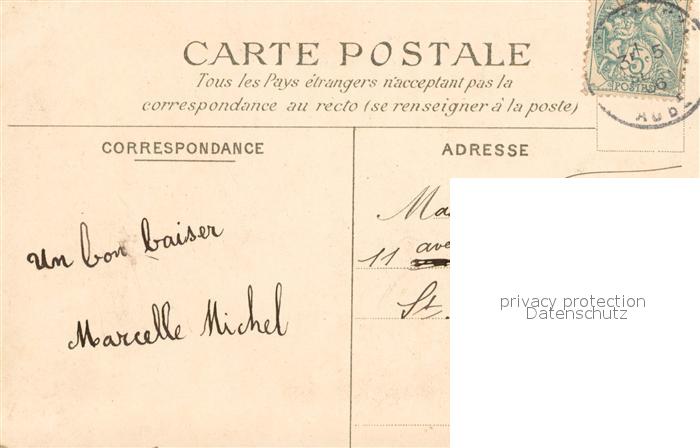 CARTE POSTALE
Tous les Pays étrangers n'acceptant pas la
correspondance au recto (se renseigner à la poste)
5c
POSTES
AUBE
CORRESPONDANCE
ADRESSE
Un bon baiser
Marcelle Michel
11 ave
St.
privacy protection
Datenschutz